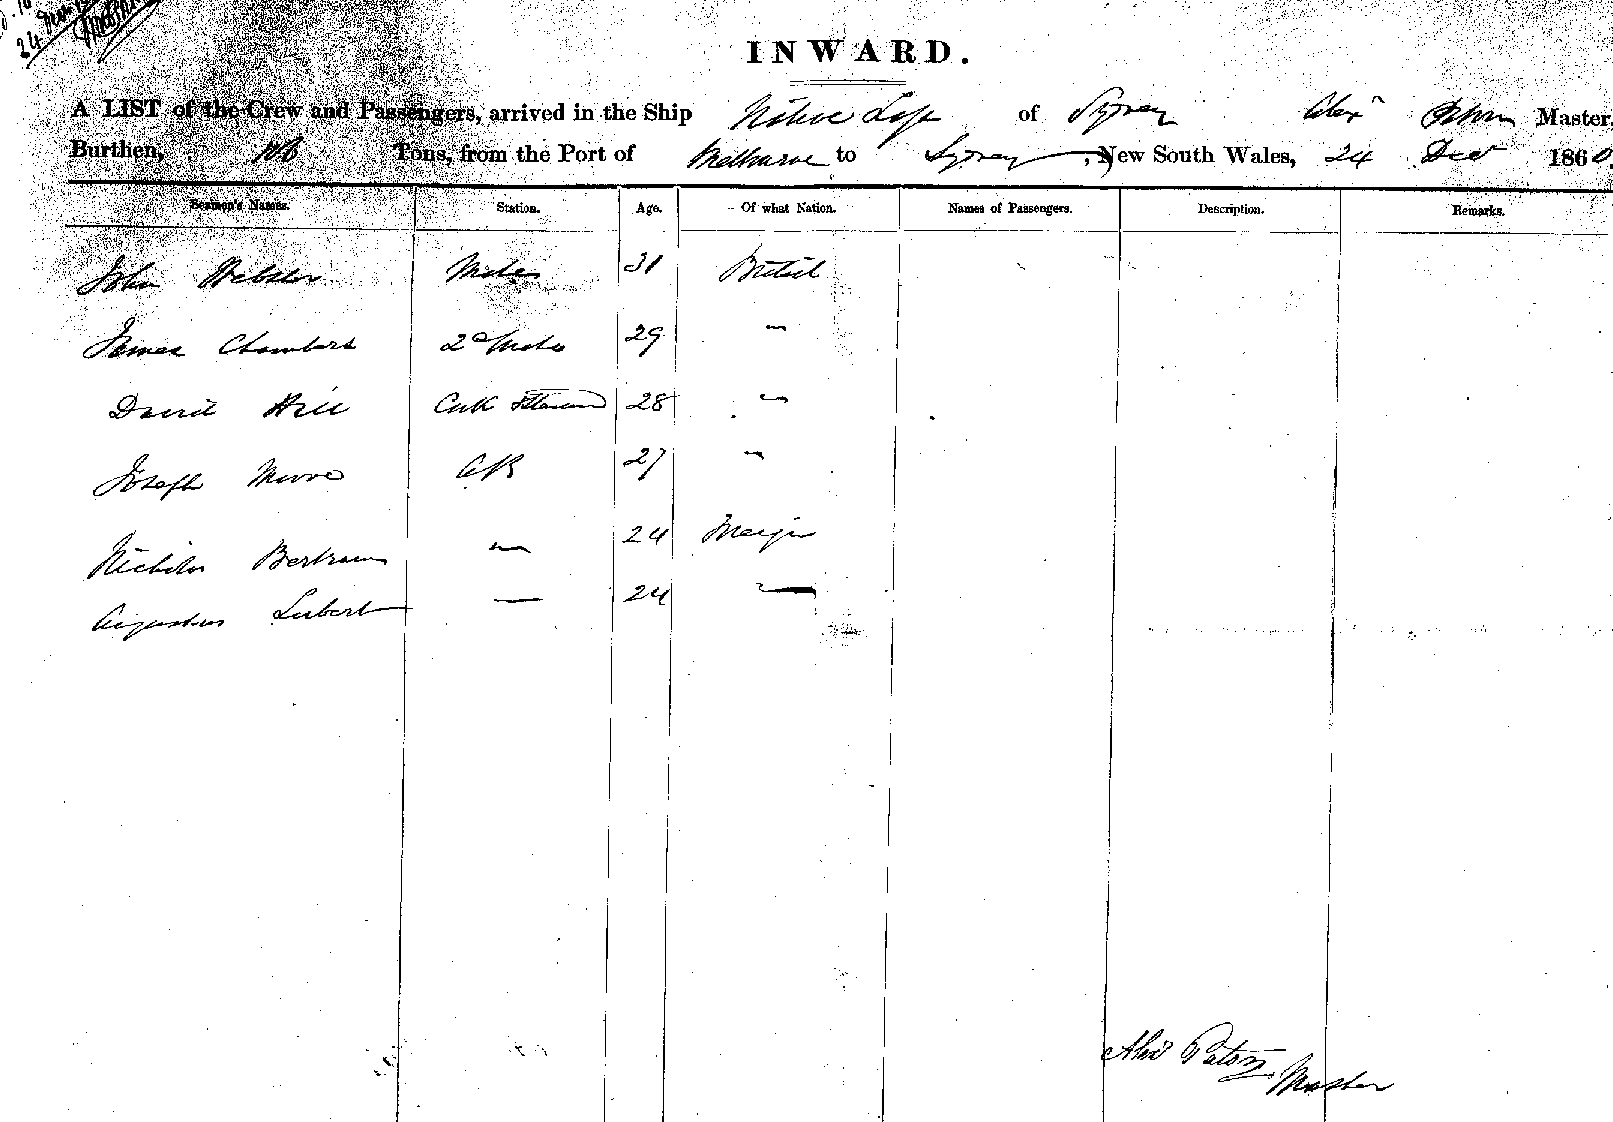 24
INWARD.
A LIST of the Crew and Passengers, arrived in the Ship Native of Sydney Alexr Master,
Burthen, 106 Tons, from the Port of Melbourne to Sydney, New South Wales, 24 Decr 1860.
Seamen's Names. Station. Age. Of what Nation. Names of Passengers. Description. Remarks.
John Webster Mate 31 British
James Chambers 2d Mate 29 "
David Hill Cook 28 "
Joseph Moore AB 27 "
Nicholas Bertram " 24
Augustus — 24 —
Alexr Paton, Master